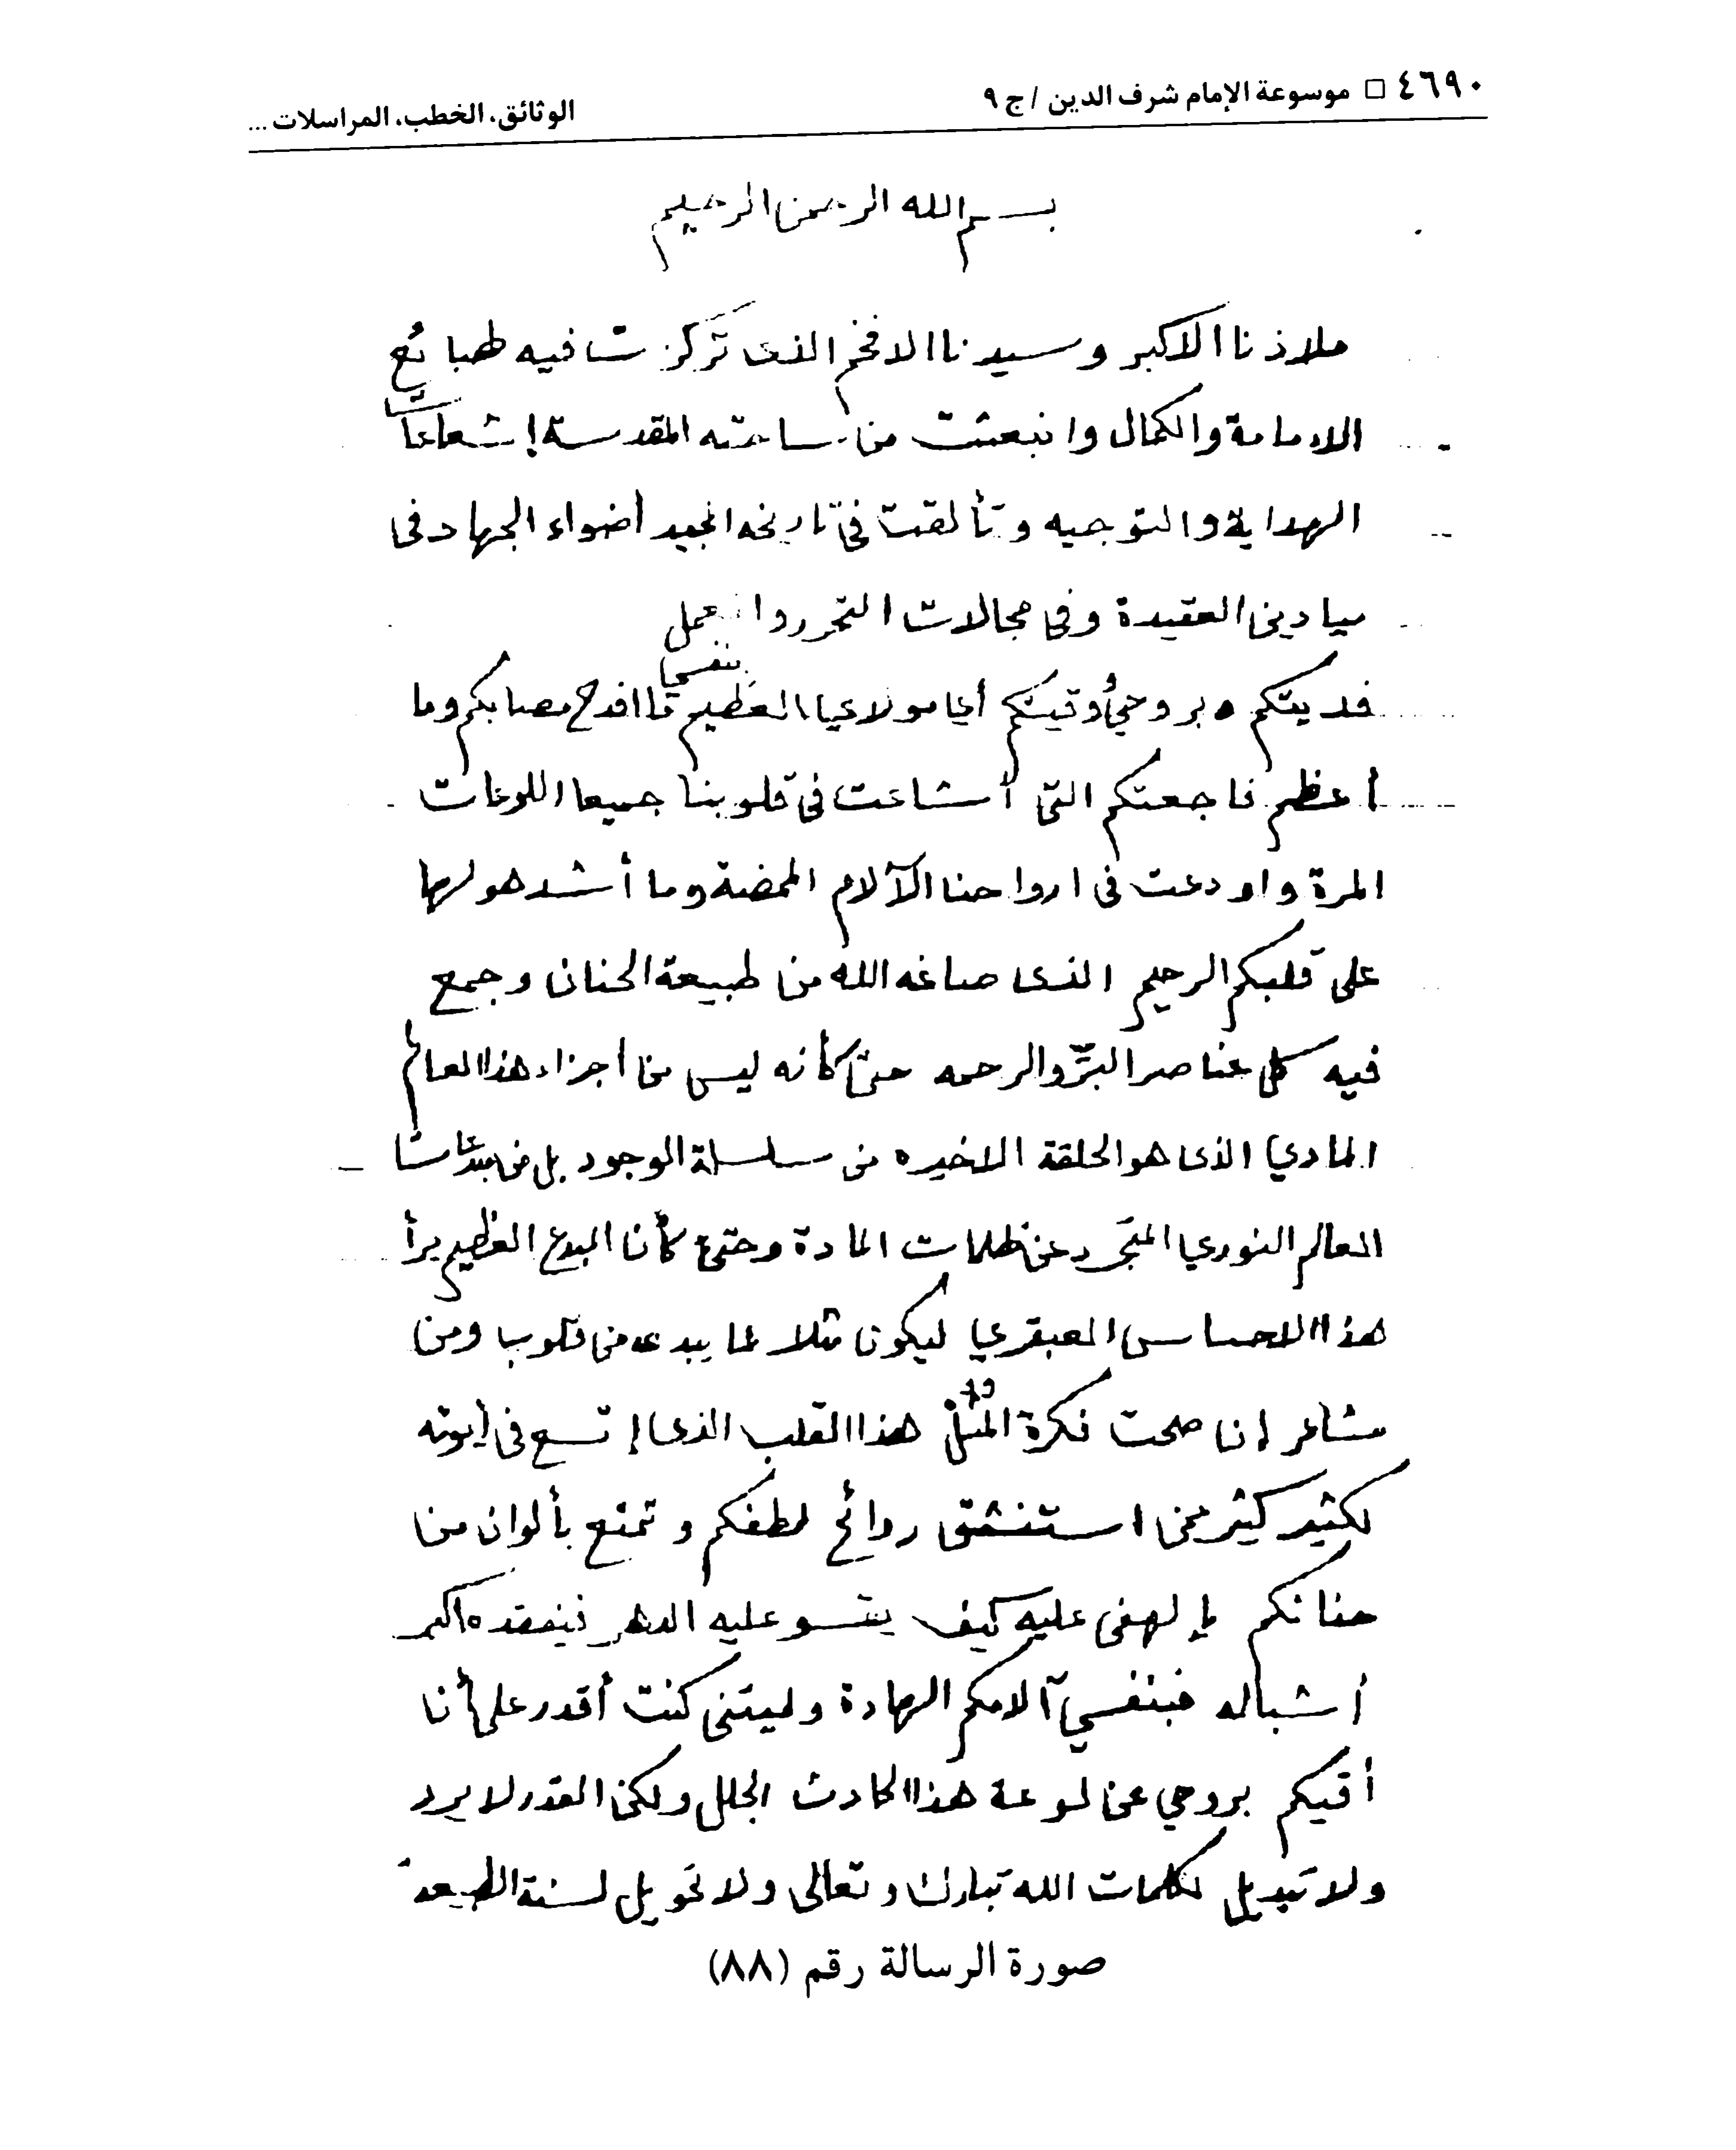 ٤٦٩٠ □ موسوعة الإمام شرف الدين / ج ٩
الوثائق، الخطب، المراسلات ...
بسم الله الرحمن الرحيم
ملاذنا الاكبر وسيدنا الافخم الذى تركزت فيه طبائع
الامامة والكمال وانبعثت من ساحته المقدسة إشعاعات
الهداية والتوجيه وتألقت في تاريخه المجيد أضواء الجهاد فى
ميادين العقيدة وفي مجالات التحرر والعمل
فديتكم بنفسي وبروحي وُقيتكم أيا مولاي العظيم فما افدح مصابكم وما
أعظم فاجعتكم التي أشاعت فى قلوبنا جميعا اللوعات
المرة واودعت فى ارواحنا الآلام الممضة وما أشد هولها
على قلبكم الرحيم الذى صاغه الله من طبيعة الحنان وجمع
فيه كل عناصر البرّ والرحمه حتى كأنه ليس من أجزاء هذا العالم
المادي الذى هو الحلقة الاخيره من سلسلة الوجود بل من مبتدعات
العالم النوري المتجرد عن ظلمات المادة وحتى كأن المبدع العظيم برأ
هذا الاحساس العبقري ليكون مثلا لما يبدعه من قلوب ومن
مشاعر إن صحت فكرة المُثل هذا القلب الذى إتسع في أبوته
لكثير كثير ممن استنشق روائح لطفكم وتمتع بألوان من
حنانكم يا لهفى عليه كيف يقسو عليه الدهر فيفقده اكبر
أشباله فبنفسي آلامكم الهادة وليتنى كنت أقدر على أن
أقيكم بروحي عن لوعة هذا الحادث الجلل ولكن القدر لا يرد
ولا تبديل لكلمات الله تبارك وتعالى ولا تحويل لسنة الطبيعة
صورة الرسالة رقم (٨٨)